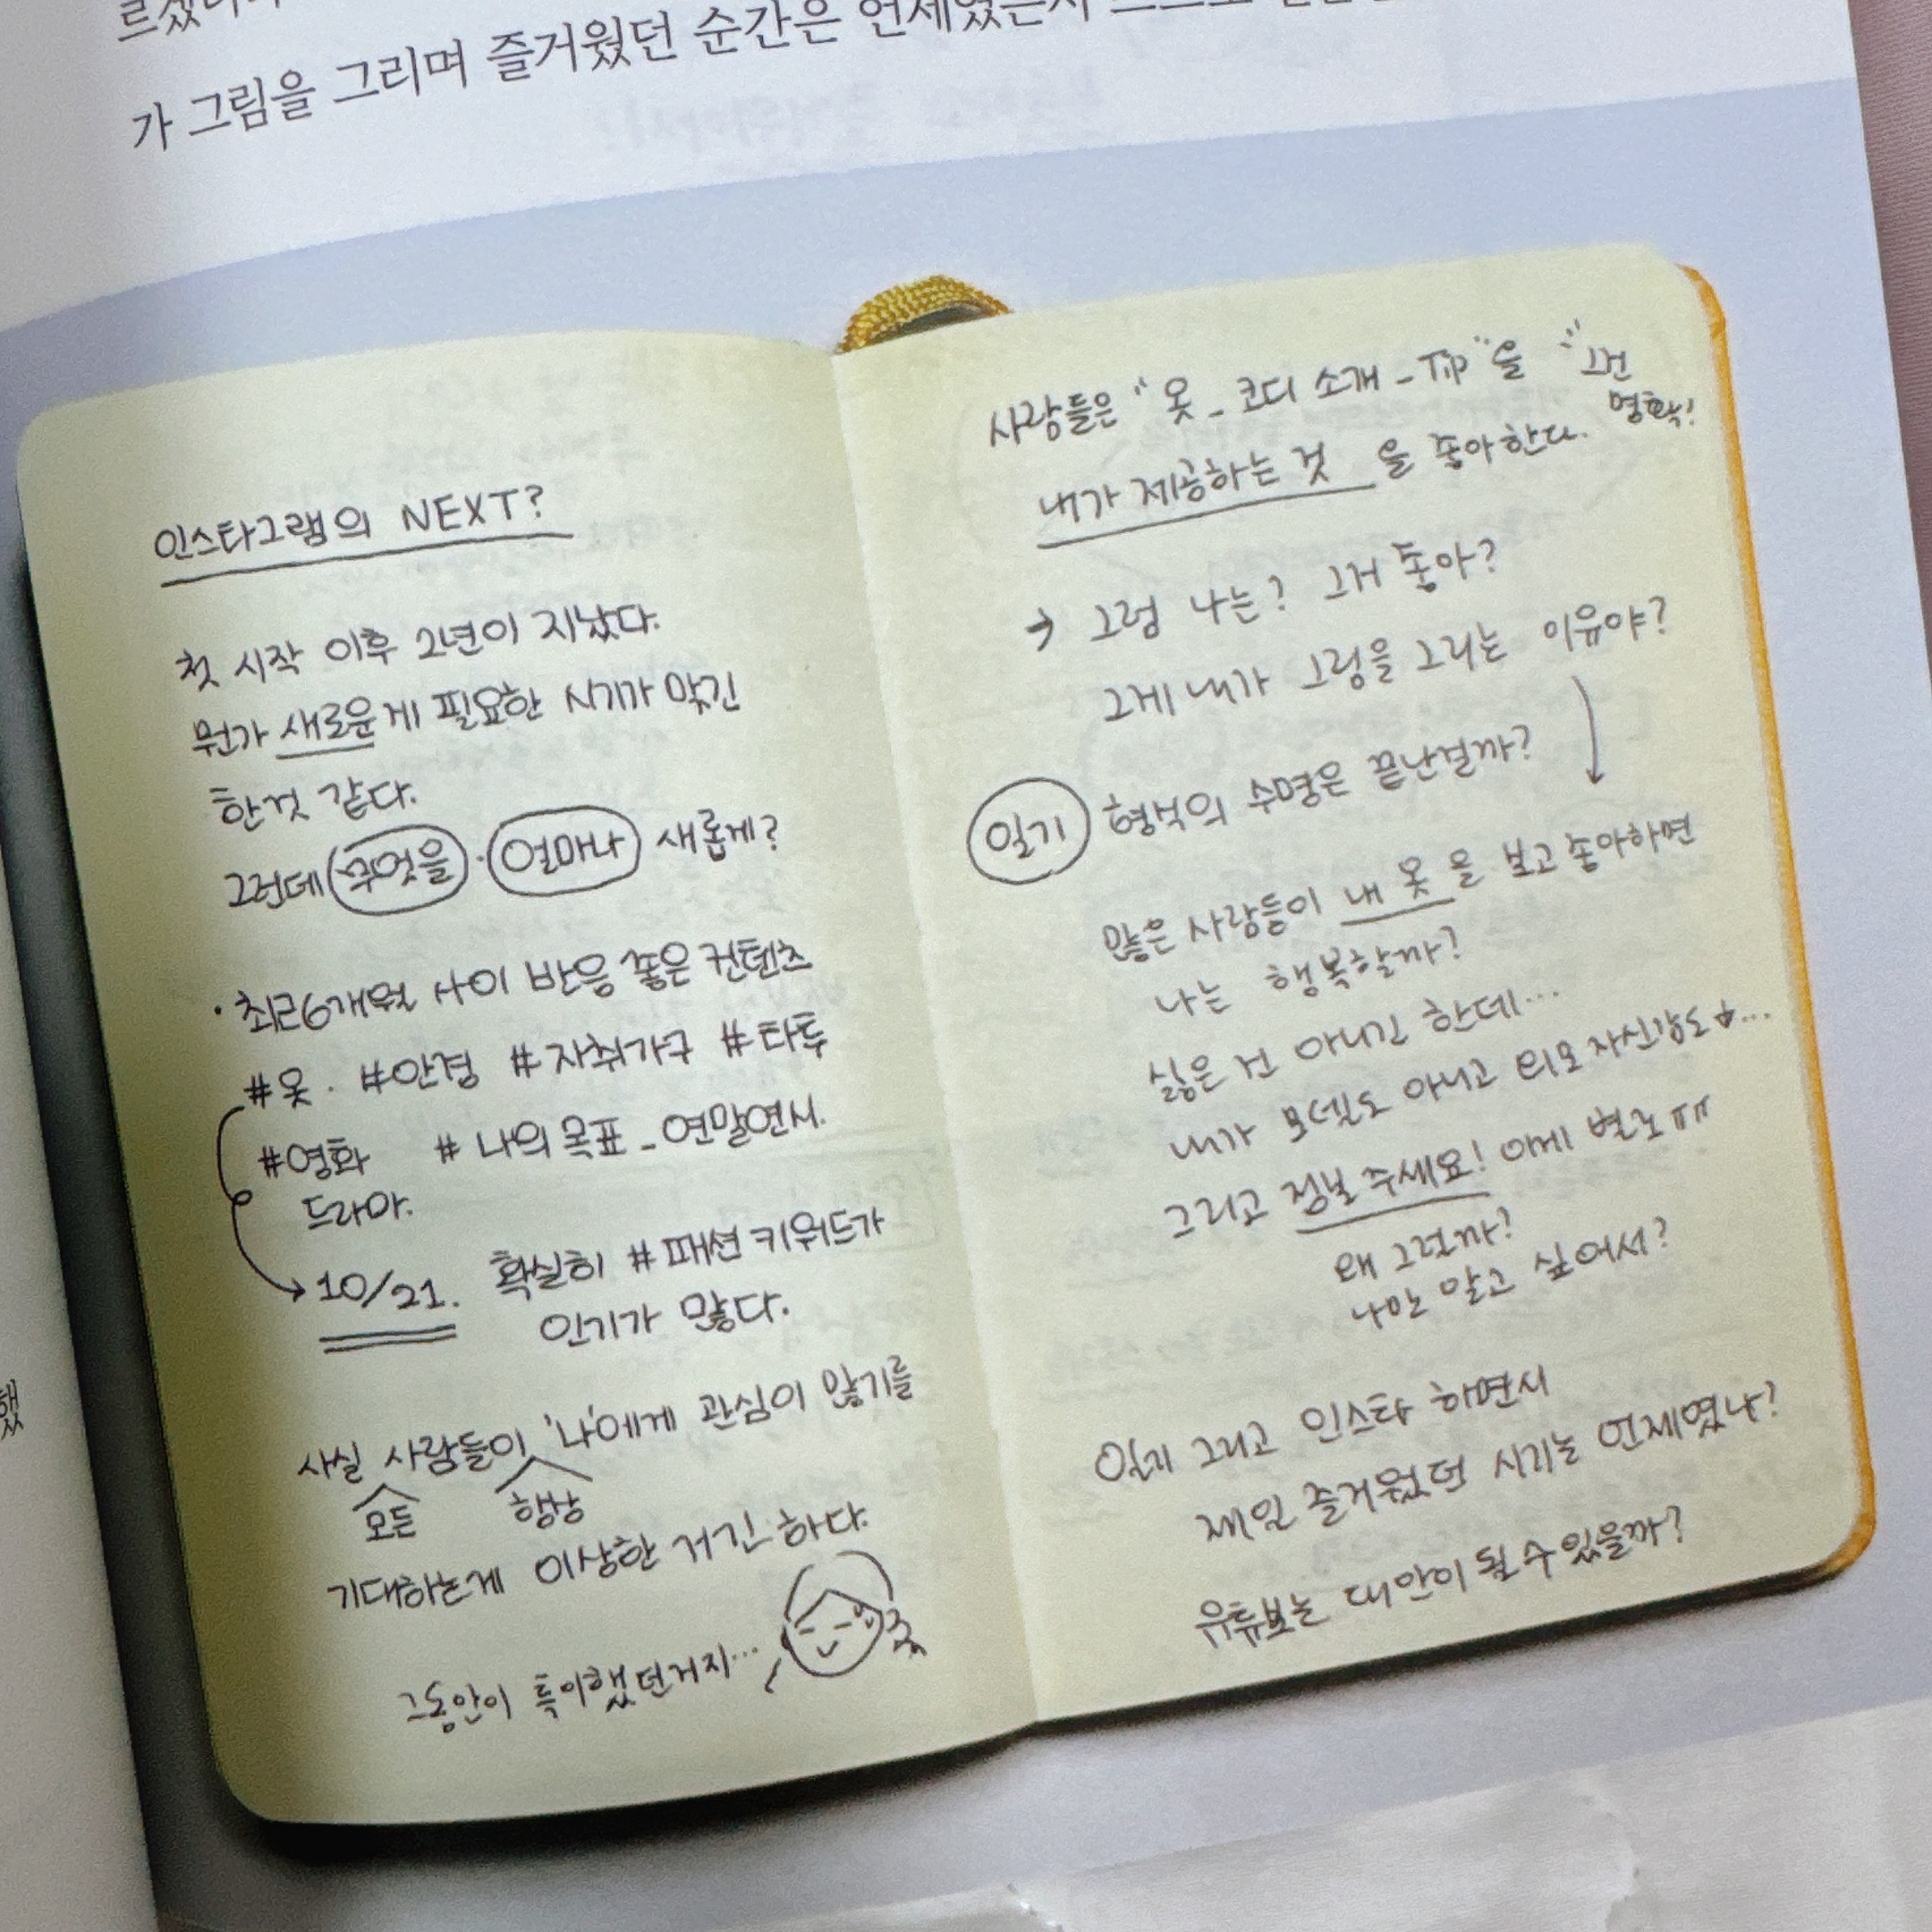 가 그림을 그리며 즐거웠던 순간은 언제였는지
인스타그램의 NEXT?
첫 시작 이후 2년이 지났다.
뭔가 새로운게 필요한 시기가 맞긴
한것 같다.
그런데 무엇을 · 얼마나 새롭게?
· 최근6개월 사이 반응 좋은 컨텐츠
#옷. #안경 #자취가구 #타투
#영화 # 나의 목표 - 연말연시.
드라마.
10/21. 확실히 #패션 키워드가
인기가 많다.
사실 사람들이 '나'에게 관심이 많기를
모든 항상
기대하는게 이상한 거긴 하다.
그동안이 특이했던거지...
사람들은 "옷 - 코디 소개 - Tip"을 그건
명확!
내가 제공하는 것 을 좋아한다.
→ 그럼 나는? 그거 좋아?
그게 내가 그림을 그리는 이유야?
일기 형식의 수명은 끝난걸까?
많은 사람들이 내 옷을 보고 좋아하면
나는 행복할까?
싫은 건 아니긴 한데...
내가 모델도 아니고 외모 자신감도 ↓...
그리고 정보 주세요! 이게 별로 ㅠㅠ
왜 그럴까?
나만 알고 싶어서?
일기 그리고 인스타 하면서
제일 즐거웠던 시기는 언제였나?
유튜브는 대안이 될 수 있을까?
했